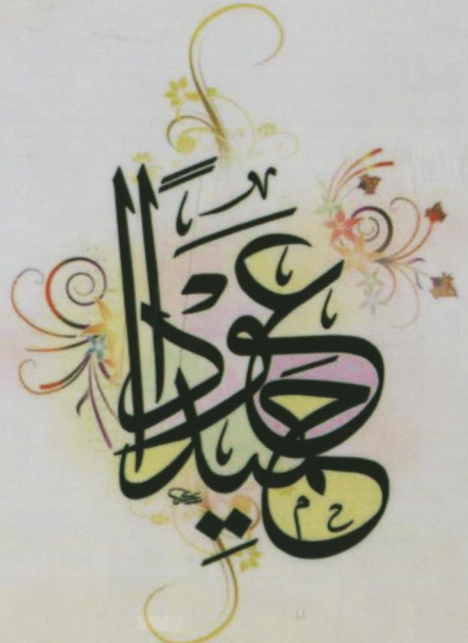 عودًا
حميدًا